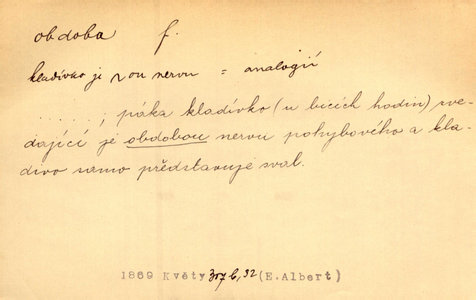 obdoba f.
kladívko je ~ou nervu = analogií
........, páka kladívko (u bicích hodin) zve-
dající je obdobou nervu pohybového a kla-
divo samo představuje sval.
1869 Květy 307b, 32 (E.Albert)